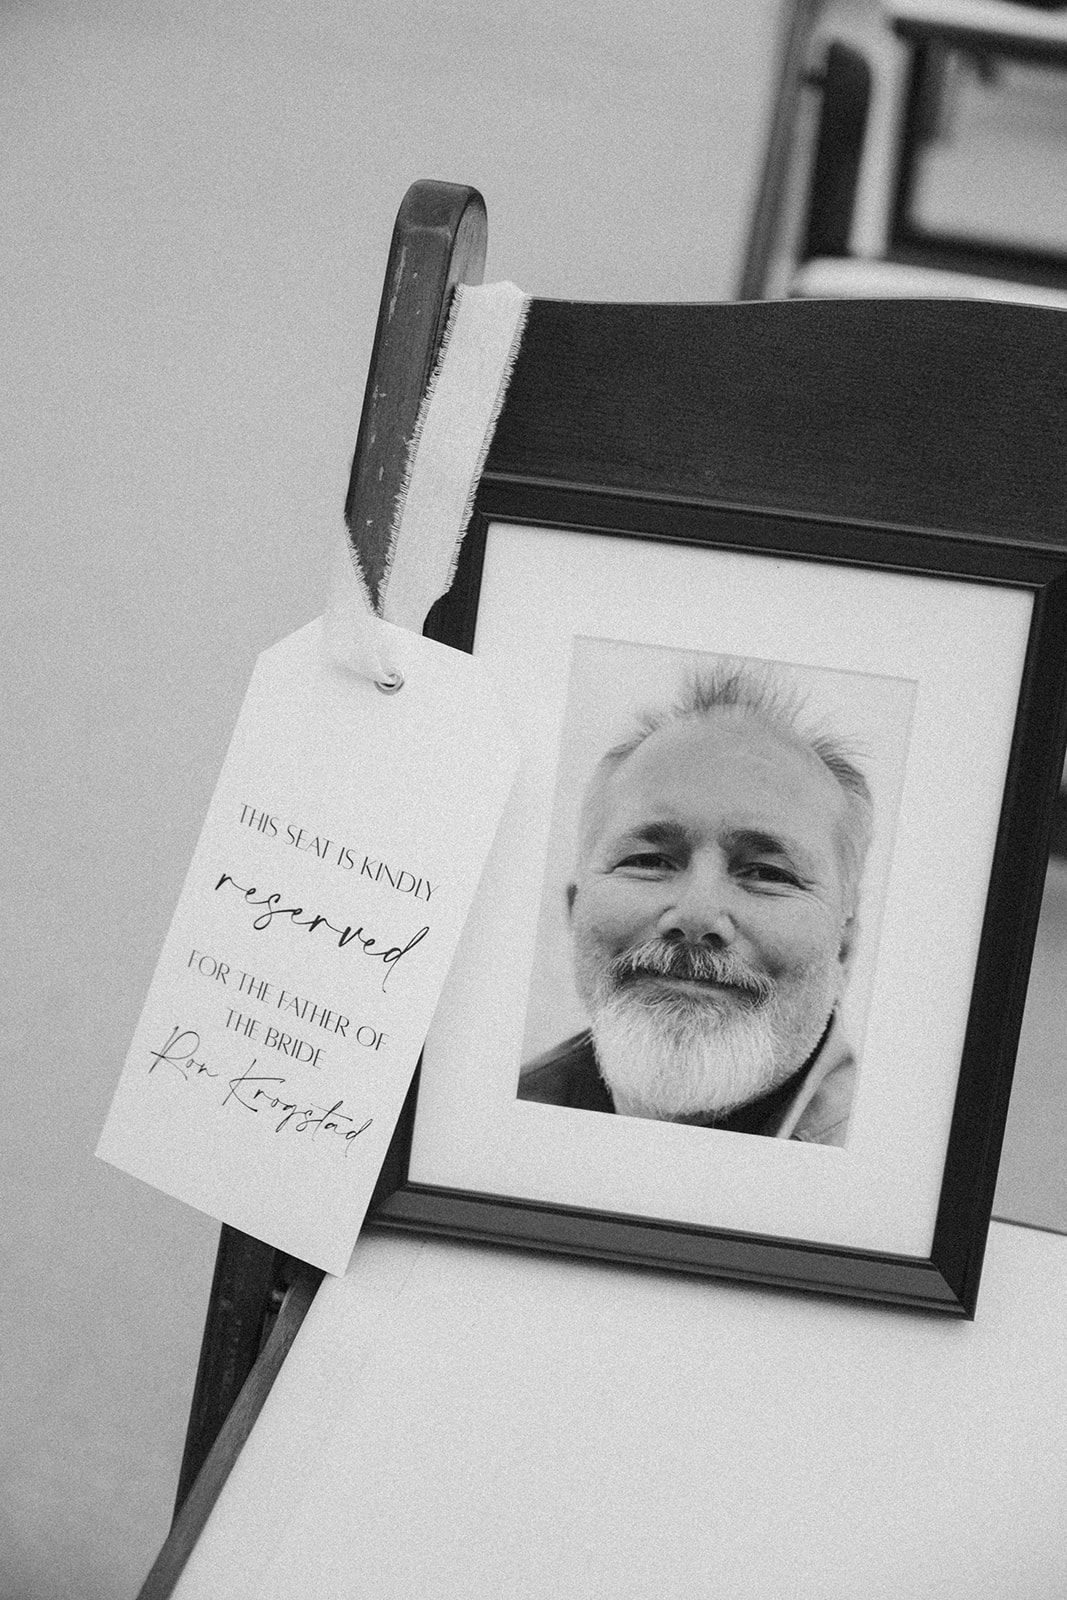 THIS SEAT IS KINDLY
reserved
FOR THE FATHER OF
THE BRIDE
Ron Krogstad